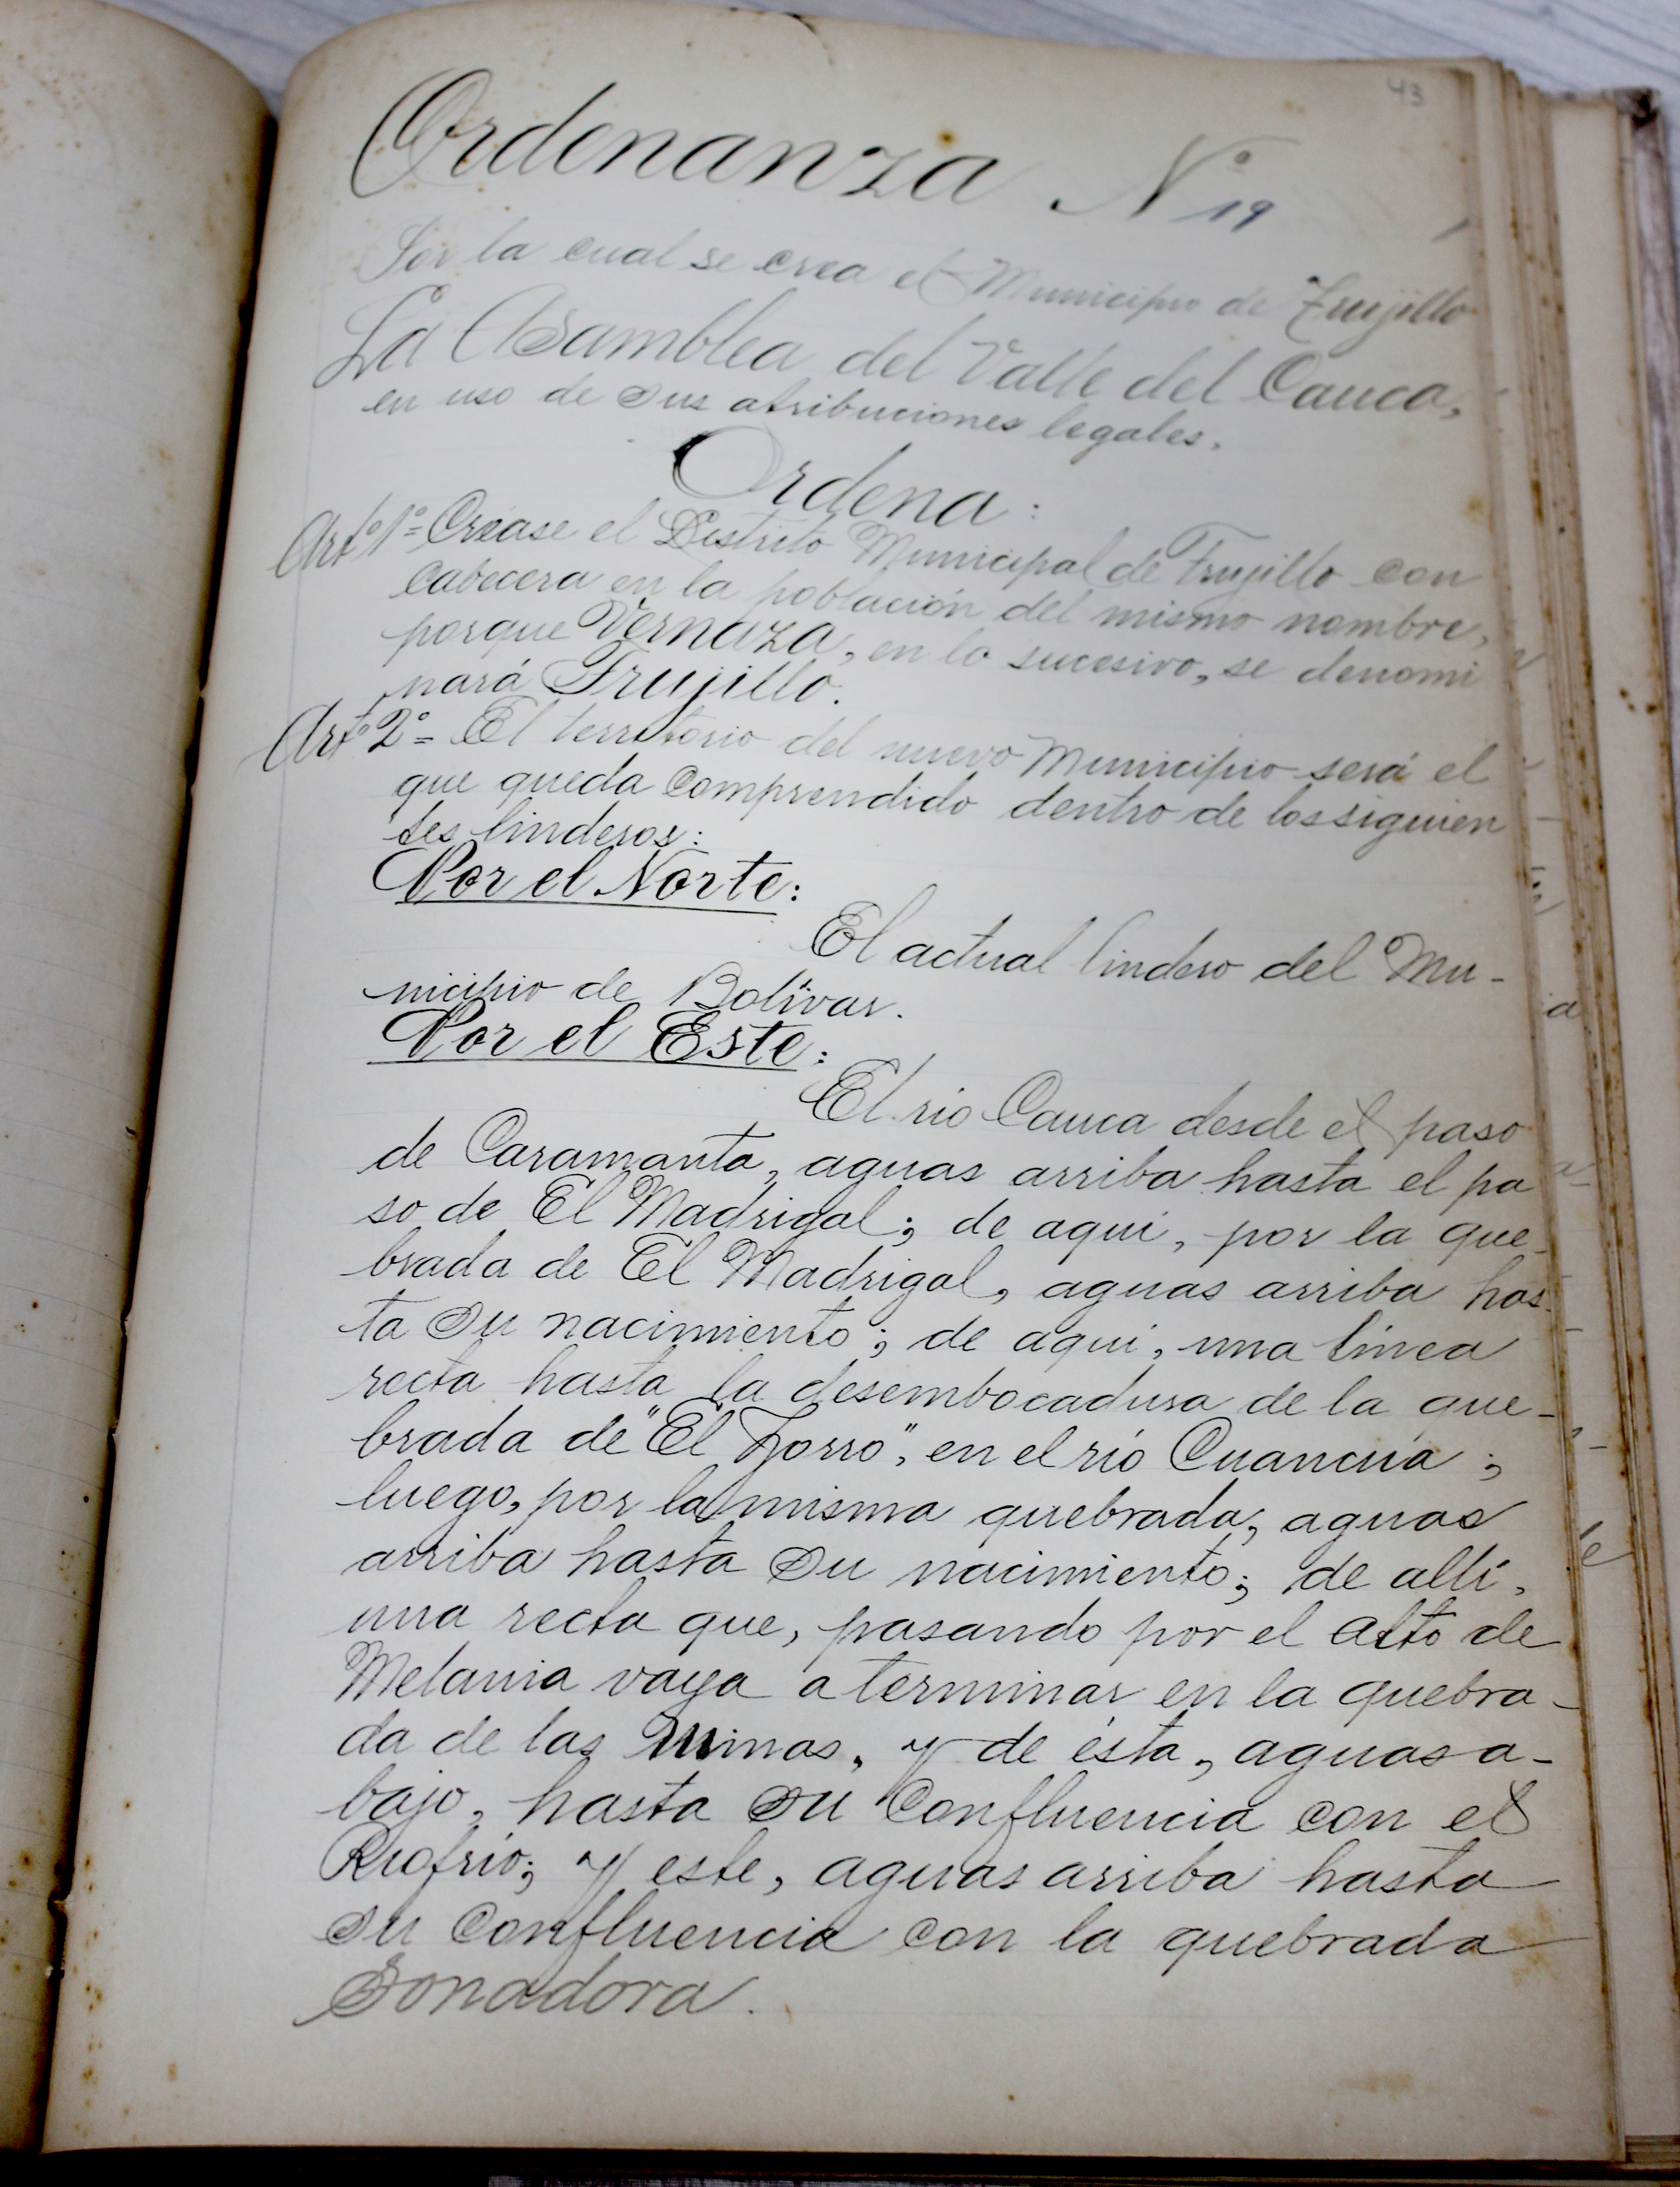 43
Ordenanza Nº 19
Por la cual se crea el Municipio de Trujillo
La Asamblea del Valle del Cauca,
en uso de sus atribuciones legales,
Ordena:
Artº 1º = Créase el Distrito Municipal de Trujillo con
cabecera en la población del mismo nombre,
porque Vernaza, en lo sucesivo, se denomi
nará Trujillo.
Artº 2º = El territorio del nuevo Municipio será el
que queda comprendido dentro de los siguien
tes linderos:
Por el Norte:
El actual lindero del Mu-
nicipio de Bolívar.
Por el Este:
El rio Cauca desde el paso
de Caramanta, aguas arriba hasta el pa
so de El Madrigal; de aqui, por la que-
brada de El Madrigal, aguas arriba has-
ta su nacimiento; de aqui, una línea
recta hasta la desembocadura de la que-
brada de "El Zorro", en el río Cuancua;
luego, por la misma quebrada, aguas
arriba hasta su nacimiento; de allí,
una recta que, pasando por el alto de
Melania vaya a terminar en la quebra-
da de las Minas, y de ésta, aguas a-
bajo, hasta su confluencia con el
Riofrío; y este, aguas arriba hasta
su confluencia con la quebrada
Sonadora.